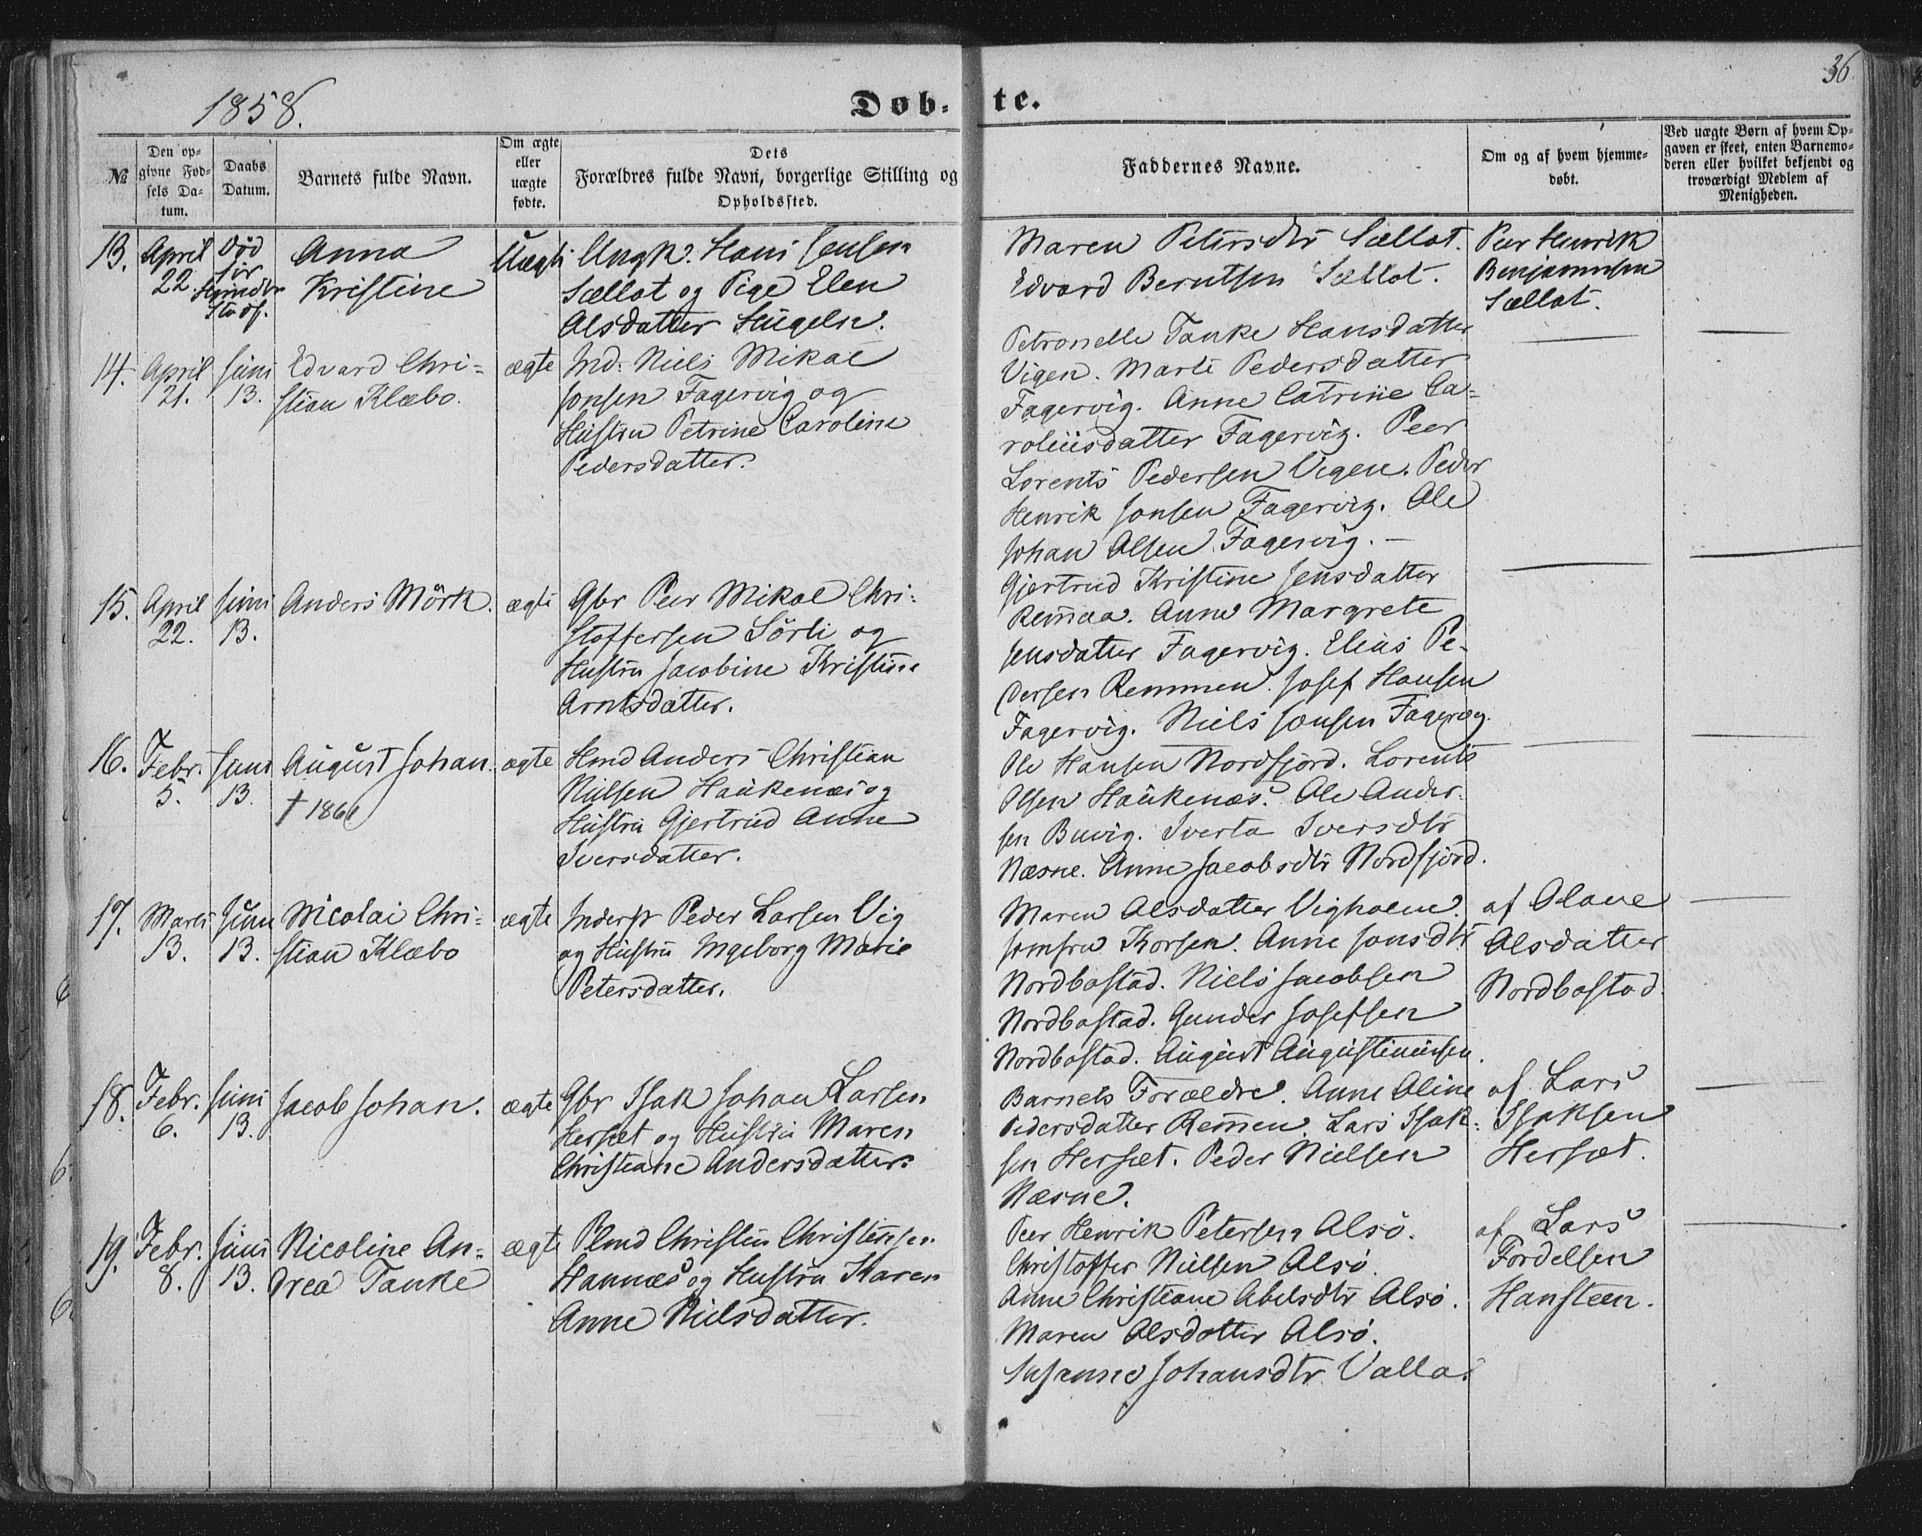 1858.
Døb-te.
36
№
Den opgivne Fødsels Datum.
Daabs Datum.
Barnets fulde Navn.
Om ægte eller uægte fødte.
Dets Forældres fulde Navn, borgerlige Stilling og Opholdssted.
Faddernes Navne.
Om og af hvem hjemmedøbt.
Ved uægte Børn af hvem Opgaven er skeet, enten Barnemoderen eller hvilket bekjendt og troværdigt Medlem af Menigheden.
13.
April
22
død
før
Stadf.
Anna
Kristine
Uægte
Ungk. Hans Jensen
Sællot og Pige Elen
Olsdatter Hugeln.
Maren Petersdtr Sællot.
Edvard Berntsen Sællot.
Peer Henrik
Benjaminsen
Sællot.
14.
April
21.
Juni
13.
Edvard Chri-
stian Klæbo.
ægte
Ind: Niels Mikal
Jonsen Fagervig og
Hustru Petrine Caroline
Pedersdatter.
Petronelle Tanke Hansdatter
Vigen. Marte Pedersdatter
Fagervig. Anne Catrine Ca-
roliusdatter Fagervig. Peer
Lorents Pedersen Vigen. Peder
Henrik Jonsen Fagervig. Ole
Johan Olsen Fagervig. —
15.
April
22.
Juni
13.
Anders Mörk.
ægte
Gbr Peer Mikal Chri-
stoffersen Sörli og
Hustru Jacobine Kristine
Arntsdatter.
Gjertrud Kristine Jensdatter
Remaa. Anne Margrete
Jensdatter Fagervig. Elias Pe-
dersen Remmen. Josef Hansen
Fagervig. Niels Jonsen Fagervig.
16.
Febr.
5.
Juni
13.
August Johan.
† 1861
ægte
Hmd Anders Christian
Nielsen Haukenæs og
Hustru Gjertrud Anne
Iversdatter.
Ole Hansen Nordfjord. Lorents
Olsen Haukenæs. Ole Ander-
sen Buvig. Iverta Iversdtr
Næsne. Anne Jacobsdtr Nordfjord.
17.
Marts
13.
Juni
13.
Nicolai Chri-
stian Klæbo
ægte
Inderst Peder Larsen Vig
og Hustru Ingeborg Marie
Petersdatter.
Maren Olsdatter Vigholm.
Jomfru Korsen. Anne Jonsdtr
Nordbostad. Niels Jacobsen
Nordbostad. Gunder Josefsen
Nordbostad. August Augustinussen.
af Olave
Olsdatter
Nordbostad
18.
Febr.
6.
Juni
13.
Jacob Johan.
ægte
Gbr Isak Johan Larsen
Hersæt og Hustru Maren
Christiane Andersdatter.
Barnets Forældre. Anne Oline
Pedersdatter Remen. Lars Isak-
sen Hersæt. Peder Nielsen
Næsne.
af Lars
Isaksen
Hersæt.
19.
Febr.
8.
Juni
13.
Nicoline An-
drea Tanke
ægte
Plmd Christen Christensen
Hannæs og Hustru Karen
Anne Nielsdatter.
Peer Henrik Petersen Alsö.
Christoffer Nielsen Alsö.
Anne Christiane Abelsdtr Alsö.
Maren Olsdatter Alsö.
Susanne Johansdtr Valla.
af Lars
Fordelsen
Hansteen.